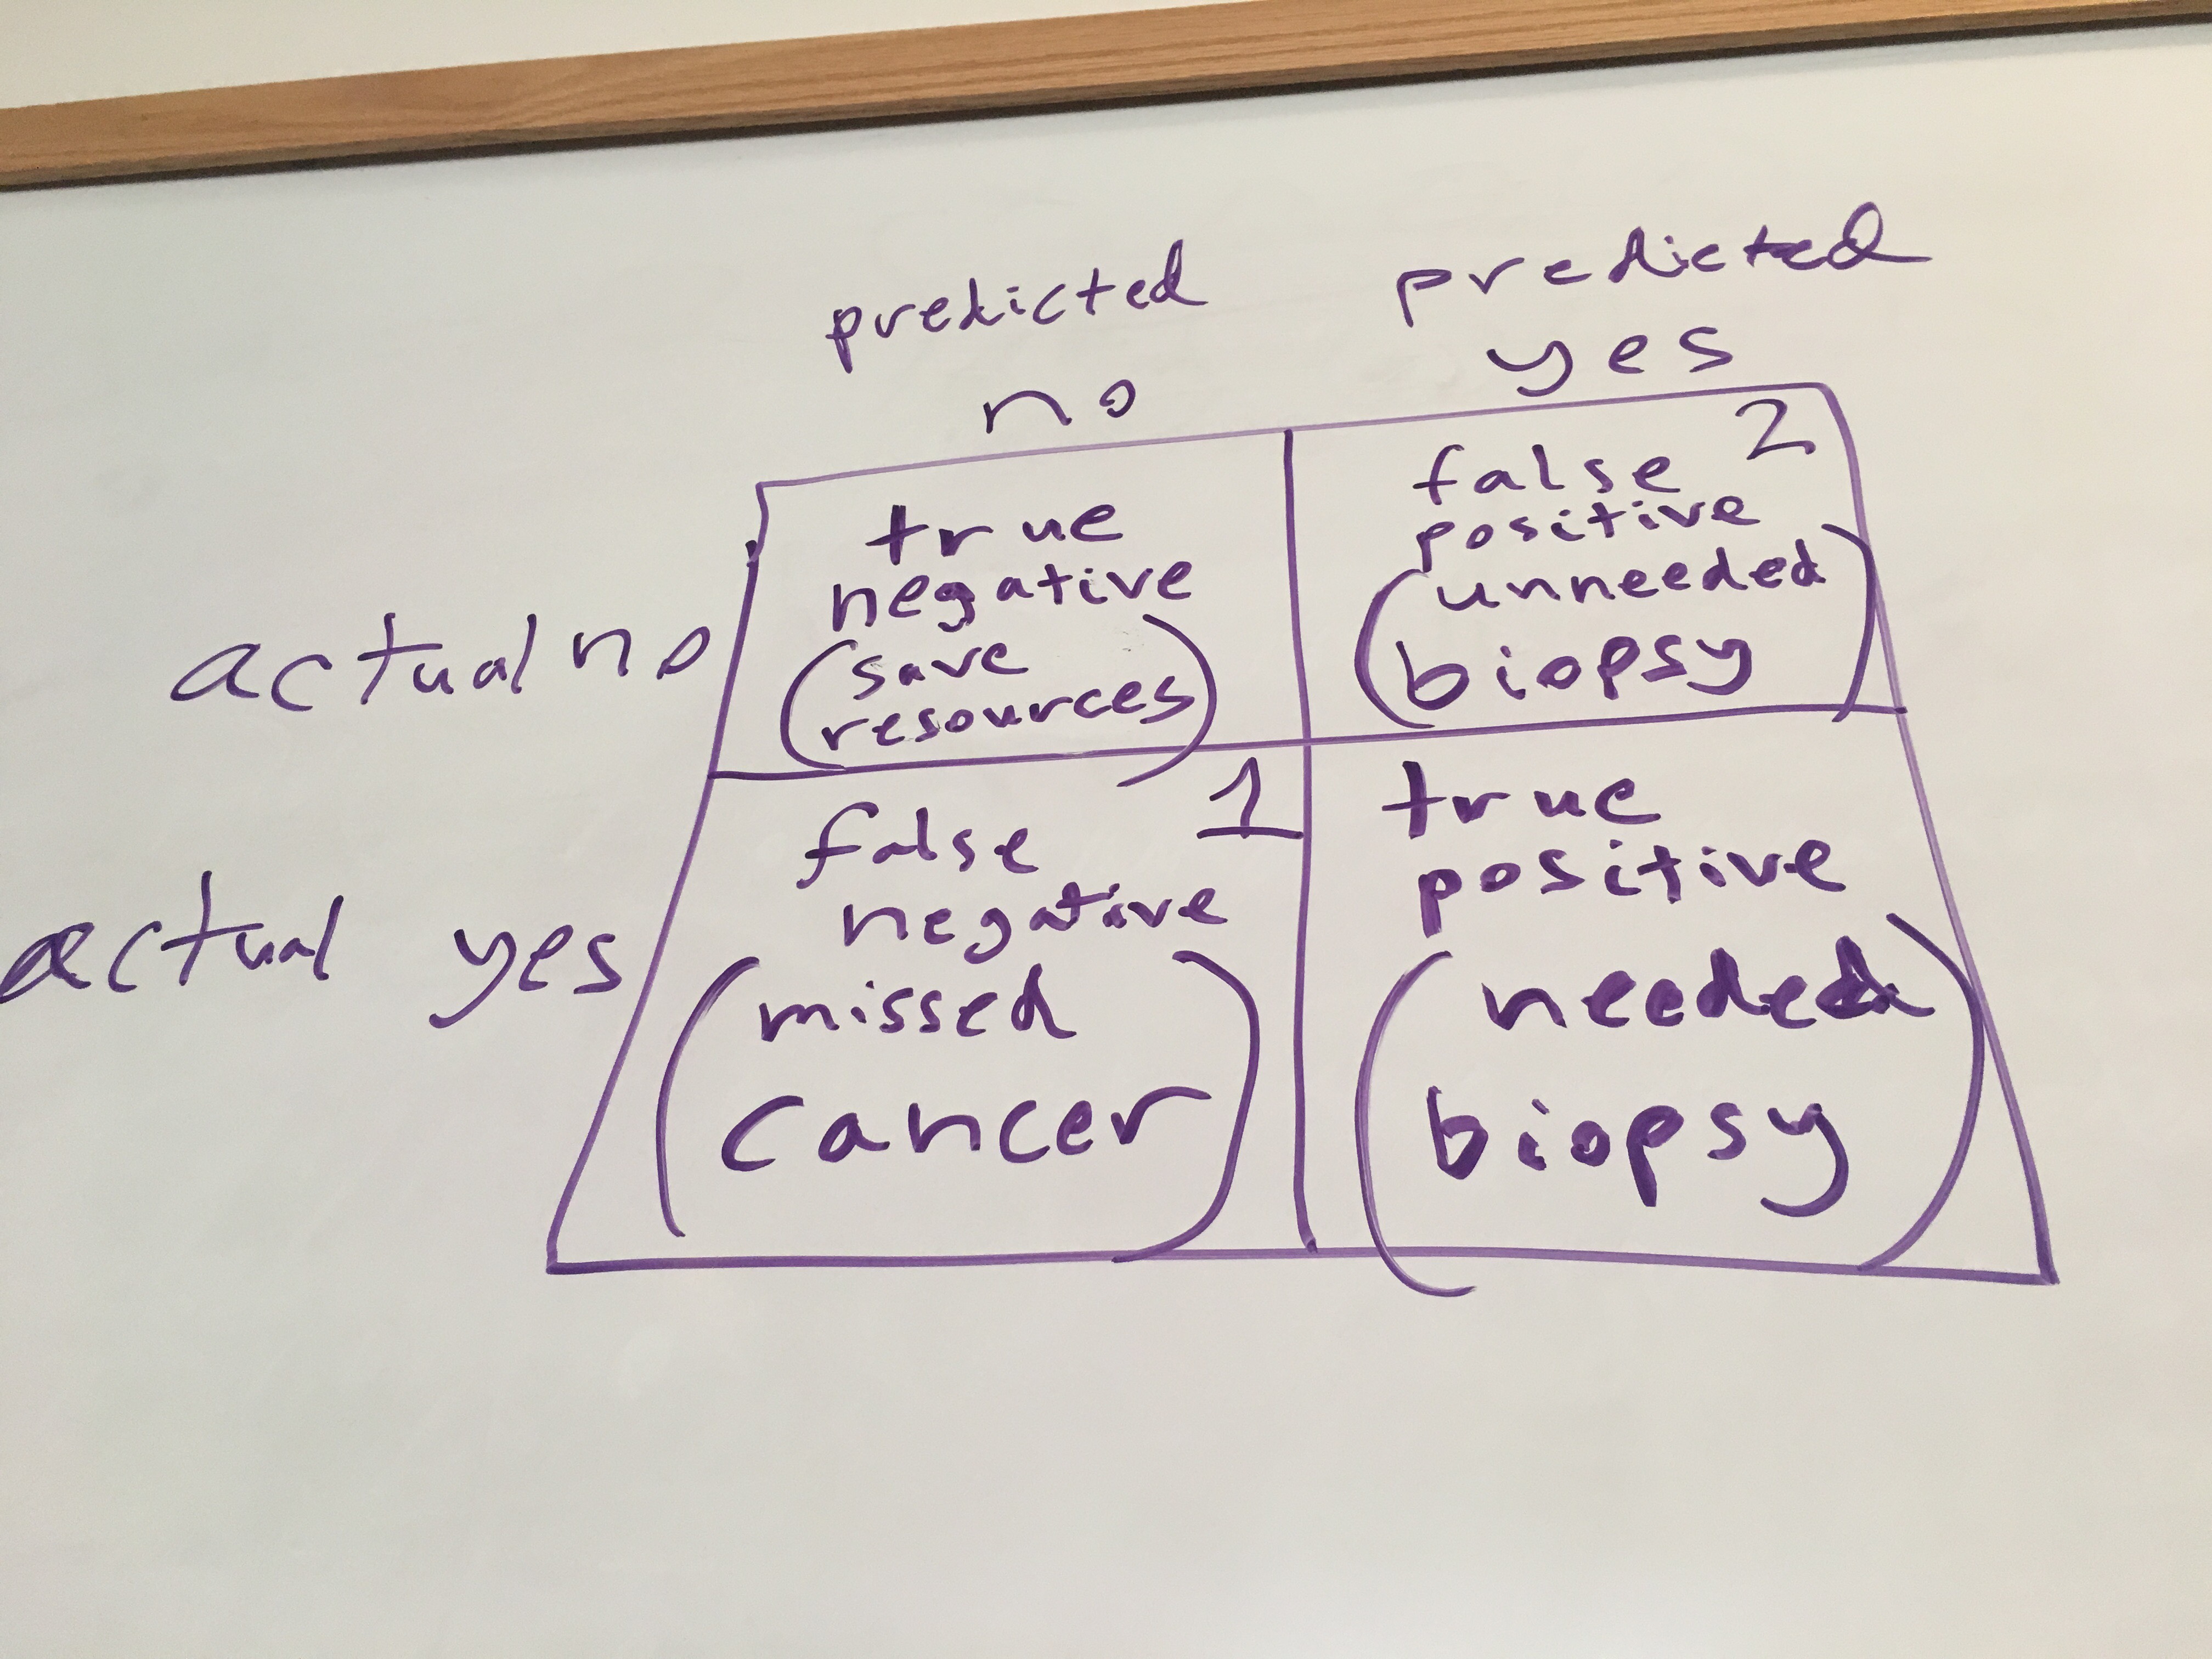 predicted
no
predicted
yes
actual no
true
negative
(save
resources)
2
false
positive
(unneeded
biopsy)
actual yes
1
false
negative
(missed
cancer)
true
positive
(needed
biopsy)